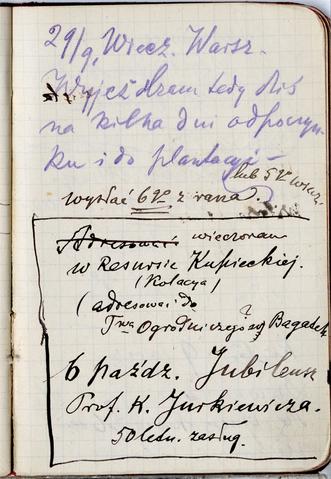 29/9, Wiecz. Warsz.
Wyjeżdżam tedy dziś
na kilka dni odpoczyn-
ku i do plantacyi –
lub 5go wiecz.
wysłać 6go z rana.
Adresować wieczorem
w Resursie Kupieckiej.
(Kolacya)
(adresować do
Twa Ogrodniczego Bagatela
?
6 paźdz. Jubileusz
Prof. K. Jurkiewicza.
50 letn. zasług.